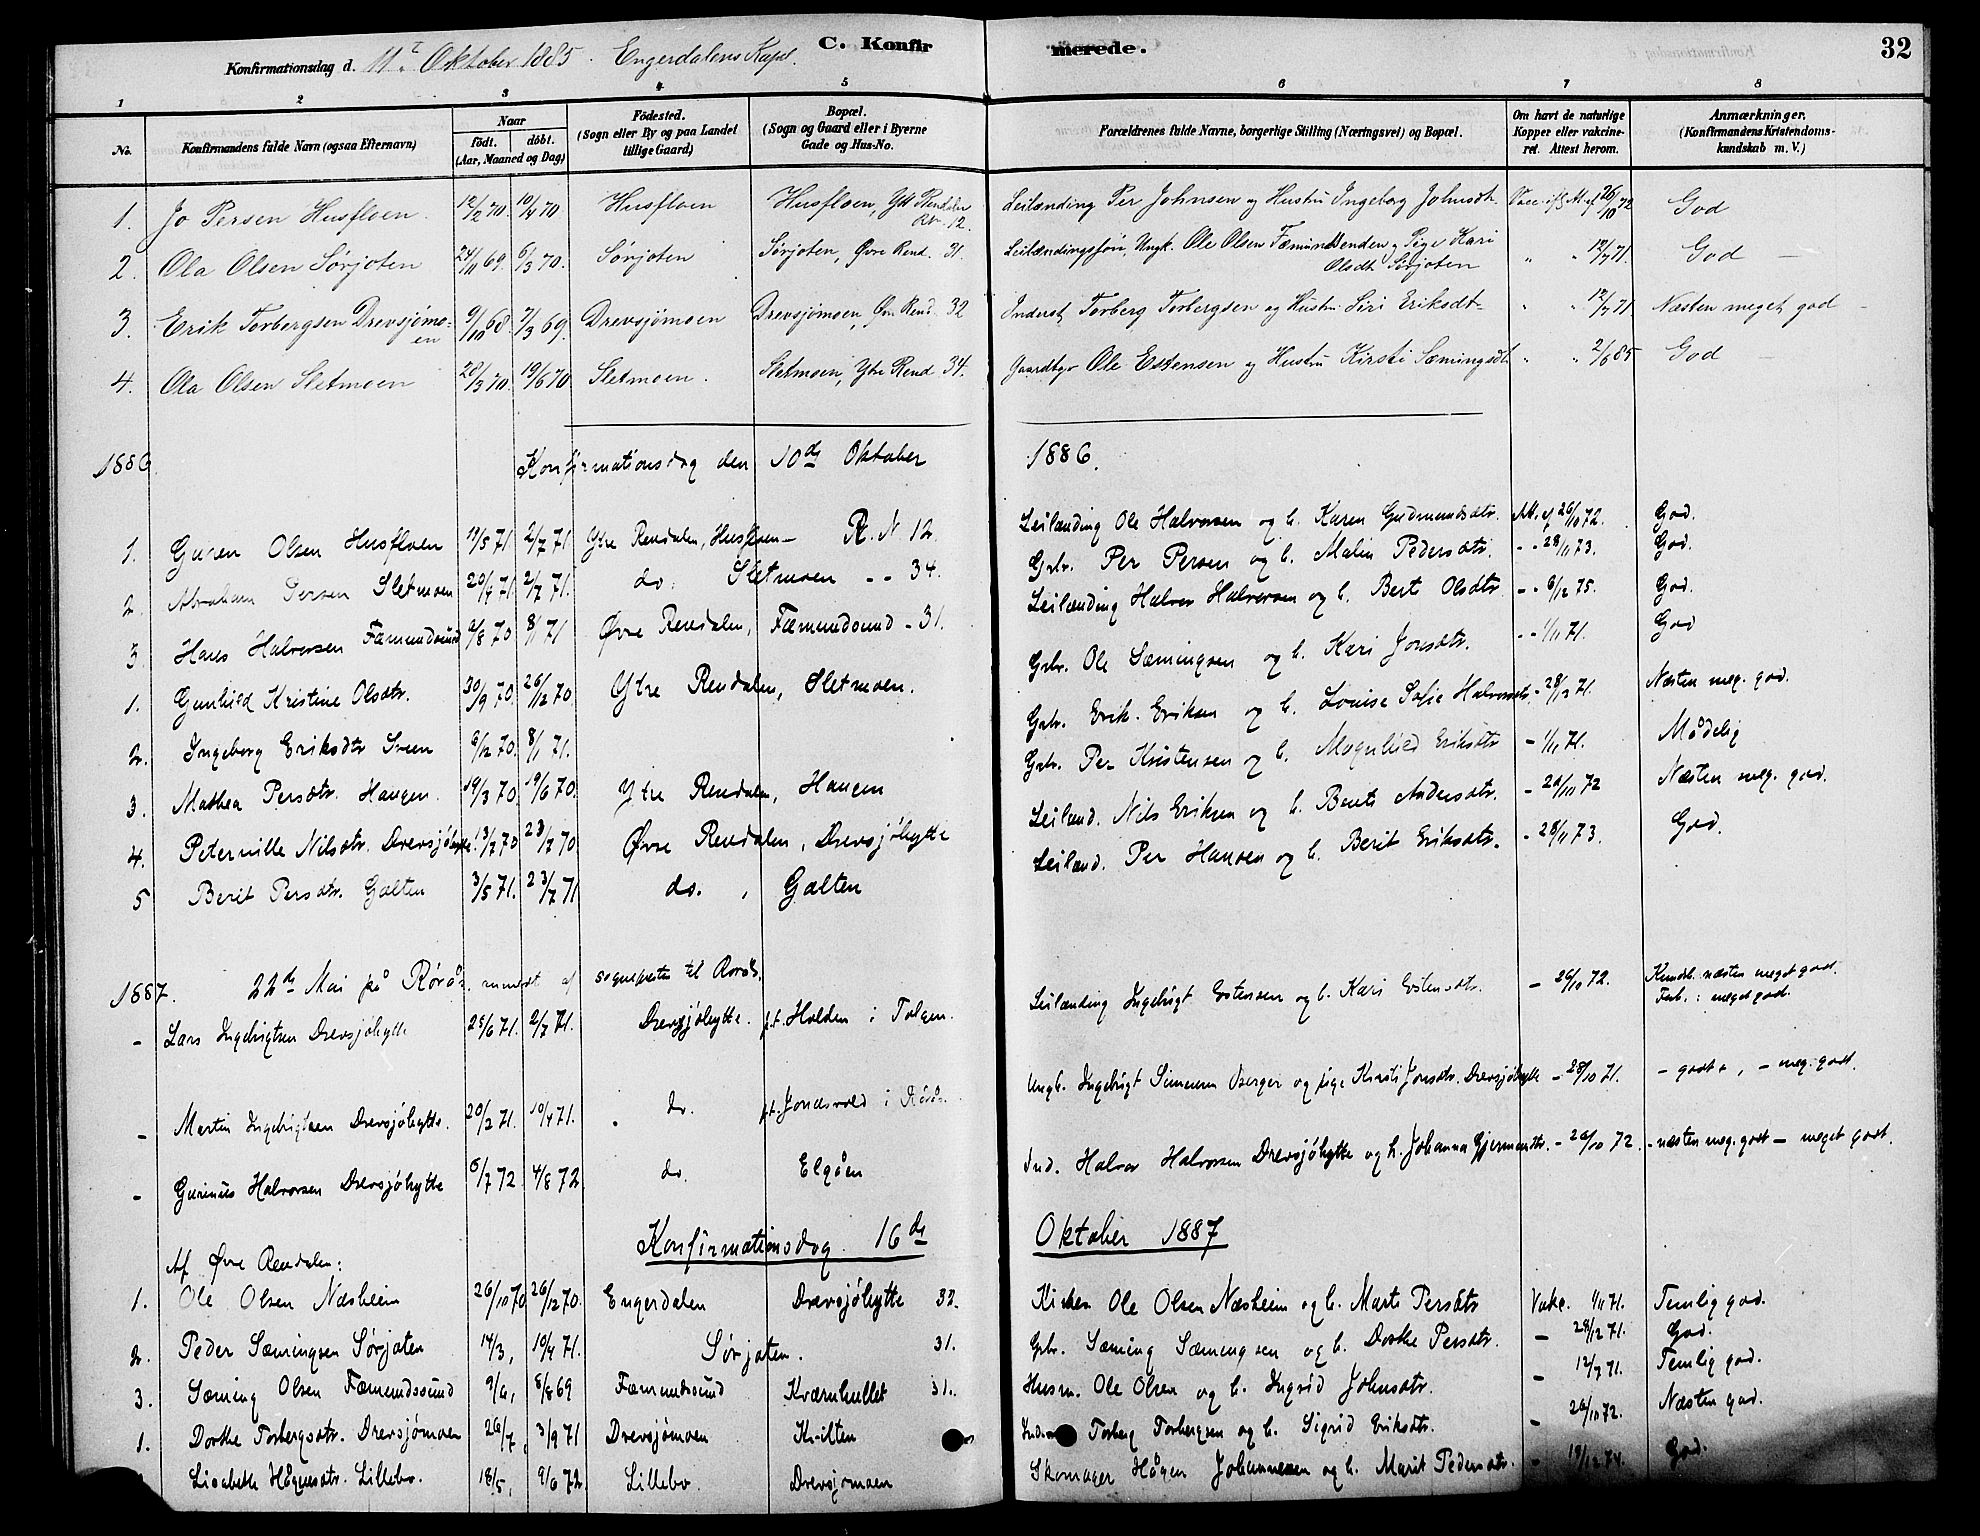 C. Konfirmerede. 32
Konfirmationsdag d. 11te Oktober 1885. Engerdalens Kapel.
1 2 3 4 5 6 7 8
No. Konfirmandens fulde Navn (ogsaa Efternavn) Naar født. døbt. (Aar, Maaned og Dag) Fødested. (Sogn eller By og paa Landet tillige Gaard) Bopæl. (Sogn og Gaard eller i Byerne Gade og Hus-No. Forældrenes fulde Navne, borgerlige Stilling (Næringsvei) og Bopæl. Om havt de naturlige Kopper eller vakcineret. Attest herom. Anmærkninger. (Konfirmandens Kristendomskundskab m. V.)
1. Jo Persen Husfloen. 12/2 70. 10/4 70 Husfloen Husfloen, Ytt Rendalen 12. Leilænding Per Johnsen og Hustru Ingeborg Johnsdt. Vacc. 26/10 72 God
2. Ola Olsen Sørjoten 24/11 69. 6/3 70. Sørjoten Sørjoten, Øvre Rend. 31. Ungk. Ole Olsen Fæmundenden og Pige Kari Olsdt. Sørjoten " " 12/7 71. God —
3. Erik Torbergsen Drevsjømoen 9/10 68. 7/3 69. Drevsjømoen Drevsjømoen, Øvr Rend. 32 Inderst Torberg Torbergsen og Hustru Siri Eriksdt. " " 12/7 71 Næsten meget god —
4. Ola Olsen Sletmoen 20/3 70. 19/6 70 Sletmoen. Sletmoen, Ytre Rend 34. Gaardbgr Ole Estensen og Hustru Kirsti Sæmingsdt " " 2/6 85 God —
1886 Konfirmationsdag den 10de Oktober 1886.
1. Olsen Husfloen 11/5 71 2/7 71 Ytre Rendalen, Husfloen — R. N. 12. Leilænding Ole Halvorsen og h. Karen Gudmundsdtr. Att. af 26/10 72. God.
2. Abraham Persen Sletmoen 20/4 71. 2/7 71. do. Sletmoen - - 34. Gbr. Per Persen og h. Malin Pedersdtr. - - 28/11 73. God.
3. Hans Halvorsen Fæmundsund 9/8 70 8/1 71 Øvre Rendalen, Fæmundsund - 31. Leilænding Halvor Halvorsen og h. Berit Olsdtr. - - 6/12 75. God.
1. Gunhild Kristine Olsdtr. 30/9 70 26/12 70 Ytre Rendalen, Sletmoen. Gbr. Ole Sæmingsen og h. Kari Jonsdtr. - - 1/11 71. God
2. Ingeborg Eriksdtr Sveen 9/12 70. 8/1 71. Gbr. Erik Eriksen og h. Louise Sofie Halvorsdtr. - 28/12 71. Næsten meg. god.
3. Mathea Persdtr. Haugen. 19/3 70 19/6 70. Ytre Rendalen, Haugen Gbr. Per Kristensen og h. Magnhild Eriksdtr - 1/11 71. Mådelig
4. Peternille Nilsdtr. Drevsjøhytte. 13/7 70 23/7 70 Øvre Rendalen, Drevsjøhytte Leilænd. Nils Eriksen og h. Berit Andersdtr. - 20/10 72 Næsten meg. god.
5 Berit Persdtr. Galten 3/5 71. 23/7 71 do. , Galten Leilænd. Per Hansen og h. Berit Eriksdtr. - 28/11 73. God.
1887. 22de Mai på Rørås, af sognepresten til Rørås.
- Lars Ingebrigtsen Drevsjøhytte 25/6 71. 2/7 71. Drevsjøhytte. p.t. Holden i Tolgen. Leilænding Ingebrigt Estensen og h. Kari Estensdtr. - 26/10 72. Kundsk. næsten meget godt. Forh.: meget god.
- Martin Ingebrigtsen Drevsjøhytte. 20/2 71. 10/4 71. do. p.t. Jonasvold i Rørås. Ungk. Ingebrigt Simensen og pige Kirsti Jonsdtr. Drevsjøhytte - 28/10 71. - godt , - meg. godt.
- Gurinius Halvorsen Drevsjøhytte 6/7 72 4/8 72 do. Elgåen Ind. Halvor Halvorsen Drevsjøhytte og h. Johanna Gjermundsdtr. - 26/10 72. - næsten meg. godt - meget godt.
Konfirmationsdag 16de Oktober 1887
Af Øvre Rendalen:
1. Ole Olsen Næsheim 26/10 70 26/12 70. Engerdalen Drevsjøhytte 32. Ole Olsen Næsheim og h. Marte Persdtr Vakc. 1/11 71. Temlig god.
2. Peder Sæmingsen Sørjoten 14/3, 10/4 71. Sørjoten. 31. Gbr. Sæming Sæmingsen og h. Dorthe Persdtr. - 28/12 71. God.
3. Sæming Olsen Fæmundssund 9/6, 8/8 69 Fæmundssund Kværnhullet 31. Husm. Ole Olsen og h. Ingrid Johnsdtr. - 12/7 71. Temlig god.
1. Dorthe Torbergsdtr. Drevsjømoen 26/7, 3/9 71 Drevsjømoen Kvilten Torberg Torbergsen og h. Sigrid Eriksdtr. - 26/10 72. Næsten god.
Lisabeth Hågensdtr. Lillebo. 18/5, 9/6 72. Lillebo. Drevsjømoen Skomager Hågen Johannesen og h. Marit Pedersdtr. - 19/12 74. God.